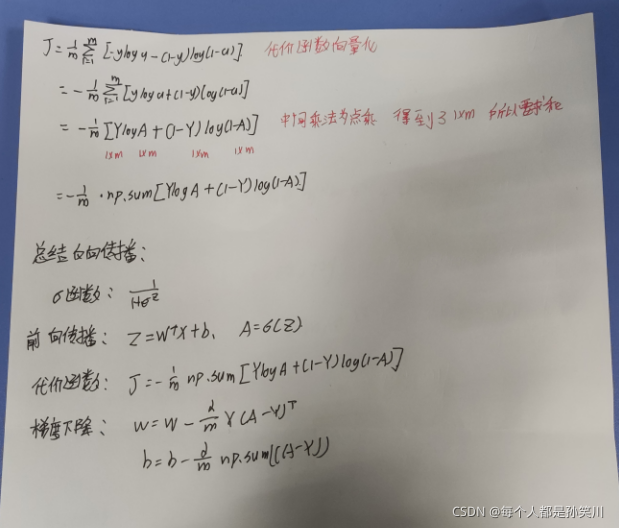 J = 1/m ∑_{i=1}^{m} [-ylogy-(1-y)log(1-a)] 代价函数向量化
= -1/m ∑_{i=1}^{m} [yloga+(1-y)log(1-a)]
= -1/m [YlogA+(1-Y)log(1-A)] 中间乘法为点乘 得到了1xm 所以要求和
1xm 1xm 1xm 1xm
= -1/m · np.sum[YlogA+(1-Y)log(1-A)]
总结 向传播:
σ函数: 1/(1+e^z)
前向传播: Z=W^TX+b, A=σ(Z)
代价函数: J=-1/m np.sum[YlogA+(1-Y)log(1-A)]
梯度下降: w=w-α/m X(A-Y)^T
b=b-α/m np.sum((A-Y))
CSDN @每个人都是孙笑川